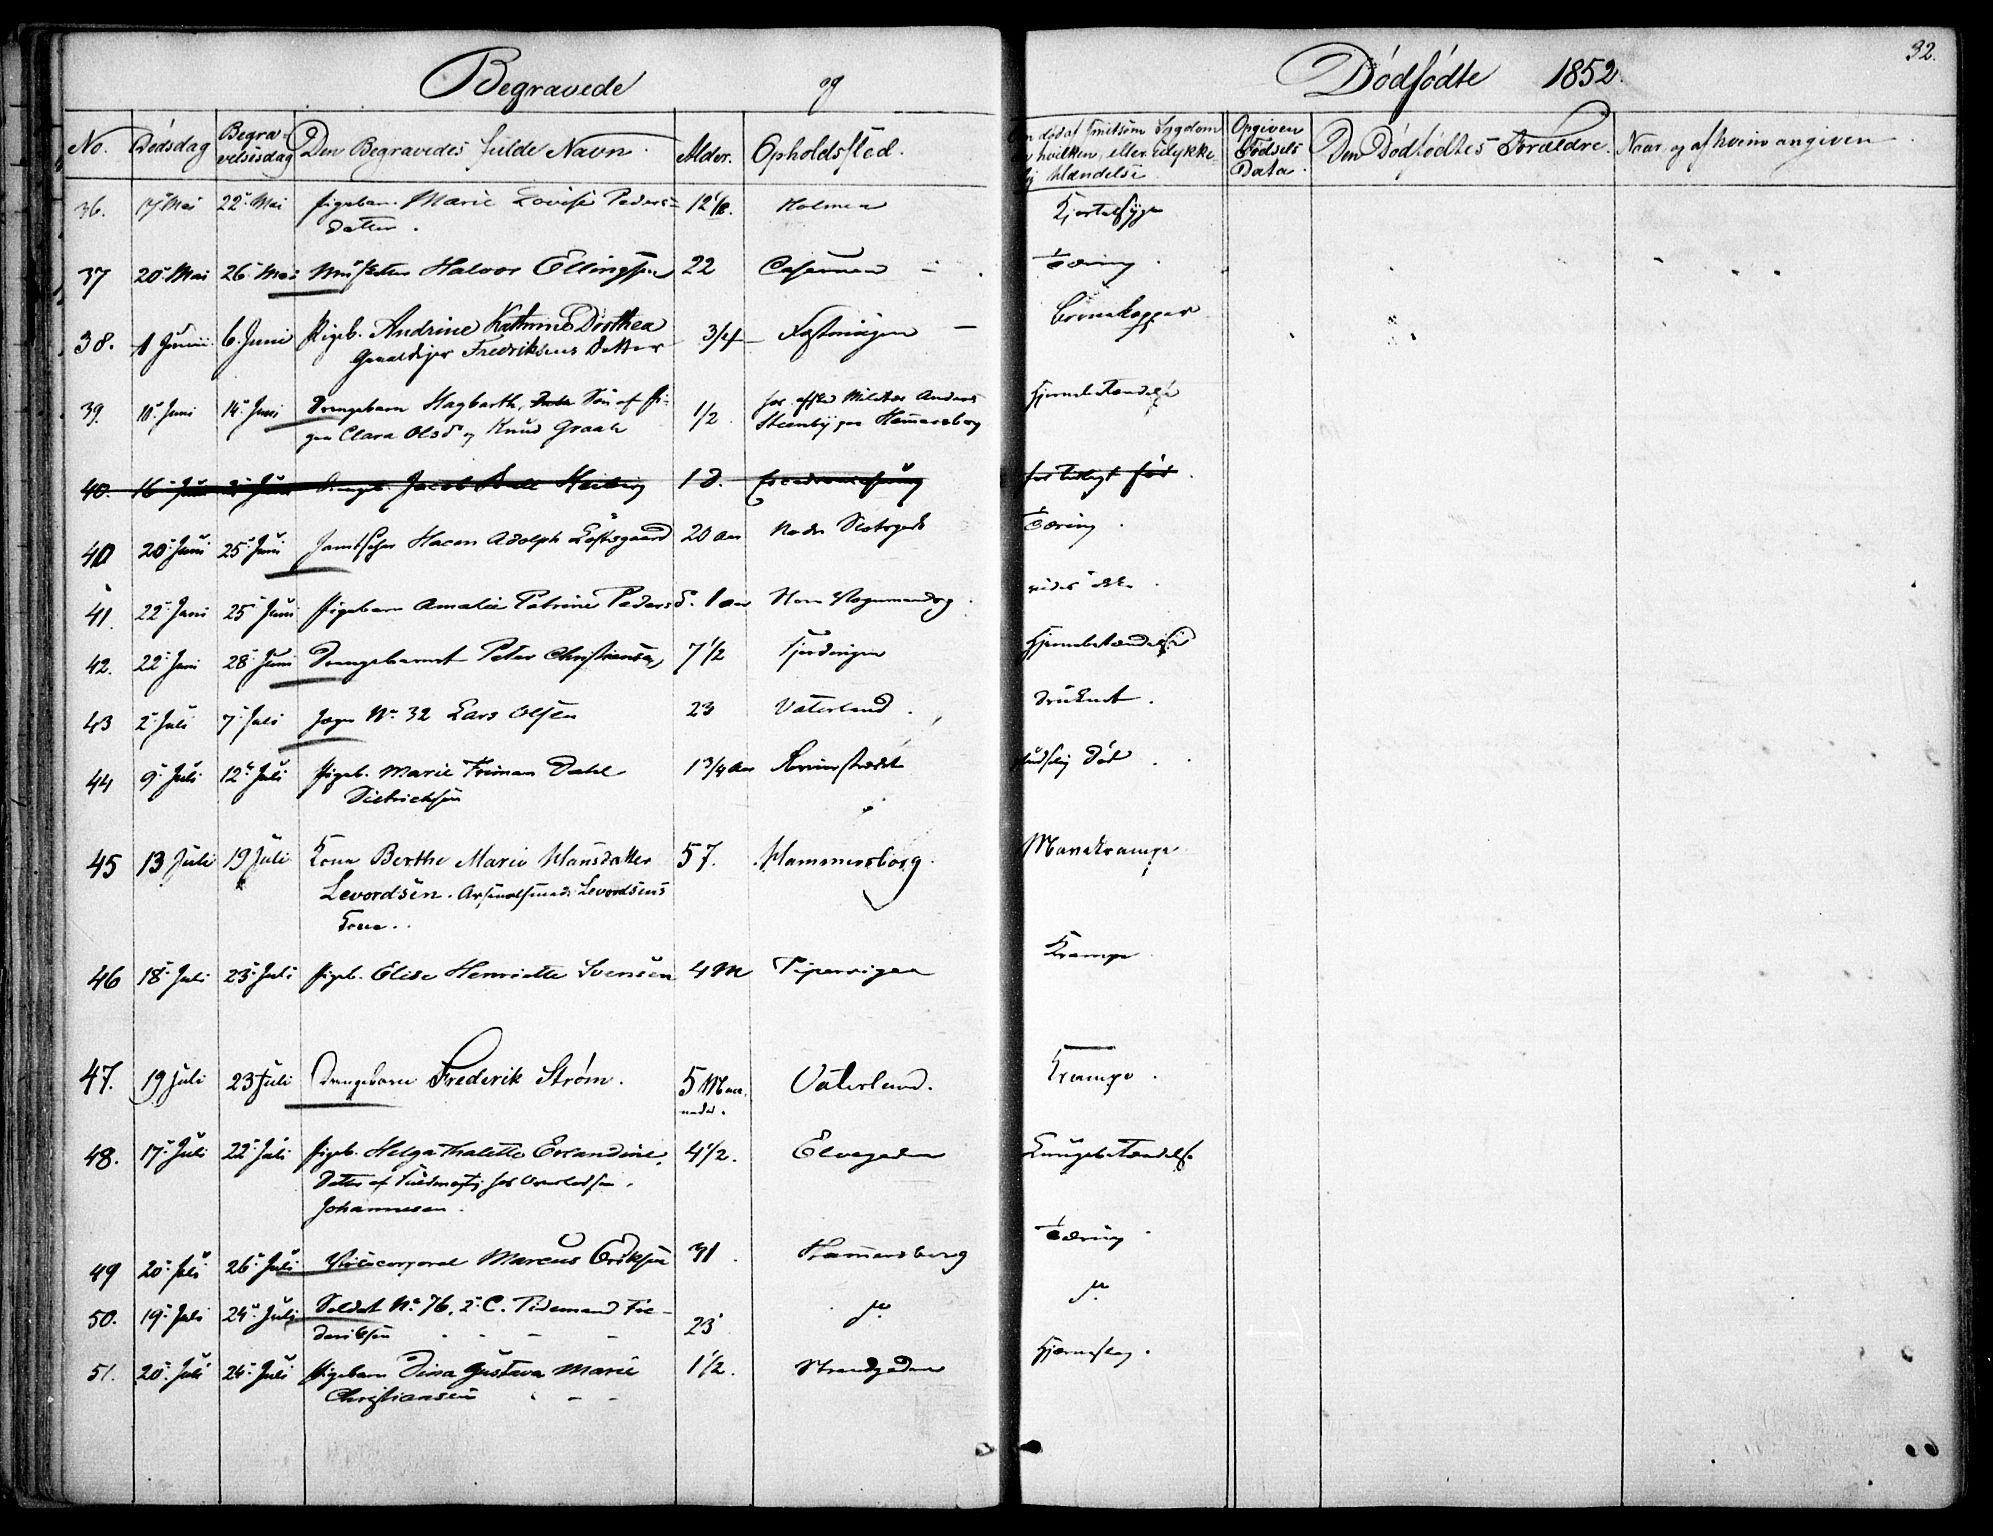 Begravede og Dødfødte 1852.
32.
No. Dødsdag Begra-velsesdag Den Begravedes fulde Navn. Alder. Opholdssted. død af smitsom Sygdom hvilken, eller Ulykke- Hændelse Opgiven Fødsels Data. Den Dødfødtes Forældre. Naar og af hvem angiven
36. 17 Mai 22 Mai Pigebarn Marie Lovise Peders-
datter. 12 Holmen Kjertelsyge
37 20 Mai 26 Mai Musketeer Halvor Ellingsen 22 Casernen Tæring
38. 1 Juni 6 Juni Pigeb. Andrine Kathrine Dorthea
Fredriksens Datter 3/4 Fæstningen Børnekopper
39. 10 Juni 14 Juni Drengebarn Hagbarth, Søn af Pi-
gen Clara Olsd og Knud Graah 1/2 hos Anders
Steenby paa Hammersborg Hjernebetændelse
40. 16 Juni Drengb. Jacob Heiberg 1 D. for tidligt fød
40 20 Juni 25 Juni Hacon Adolph Løftsgaard 20 Aar Nedre Slotsgade Tæring
41. 22 Juni 25 Juni Pigebarn Amalie Petrine Peders D. 1 Aar Vognmandsg. vides ikke
42. 22 Juni 28 Juni Drengebarnet Peter Christiansen 7 1/2 Fjerdingen Hjernebetændelse
43 2 Juli 7 Juli Jæger No 32 Lars Olsen 23 Vaterland Druknet.
44 9 Juli 12 Juli Pigeb. Marie Dahl
Dietrichsen 1 3/4 Aar pludselig Død
45 13 Juli 19 Juli Kone Berthe Marie Hansdatter
Levordsen. Levordsens
Kone. 57. Hammersborg. Mavekrampe
46 18 Juli 23 Juli Pigeb. Elise Henriette Svensen 4 M Pipervigen Krampe
47. 19 Juli 23 Juli Drengebarn Frederik Strøm. 5 Maa-
neder. Vaterland. Krampe.
48. 17 Juli 22 Juli Pigeb. Helga Thalette Erlandine,
Datter af
Johannesen. 4 1/2. Elvegaden Lungebetændelse
49 20 Juli 26 Juli Vicecorporal Marcus Eriksen 31 Hammersborg Tæring
50. 19 Juli 24 Juli Soldat No 76, 2 C. Tidemand Fre-
deriksen 23 do do
51. 20 Juli 24 Juli Pigebarn Dina Gustava Marie
Christiansen 1 1/2. Strandgaden Hjerneslag.